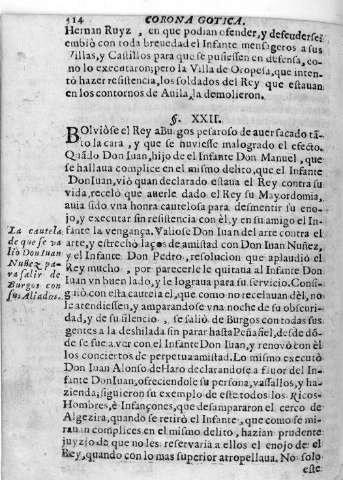 514 CORONA GOTICA.
Hernan Ruyz, en que podian ofender, y defenderse:
embiò con toda brevedad el Infante mensageros a sus
Villas, y Castillos para que se pusiessen en defensa, co-
no lo executaron; pero la Villa de Oropesa, que inten-
tò hazer resistencia, los soldados del Rey que estauan
en los contornos de Auila, la demolieron.
§. XXII.
BOlviòse el Rey a Burgos pesaroso de auer sacado tã-
to la cara, y que se huviesse malogrado el efecto.
Quãdo Don Iuan, hijo de el Infante Don Manuel, que
se hallaua complice en el mismo delito, que el Infante
Don Iuan, viò quan declarado estaua el Rey contra su
vida, recelò que auerle dado el Rey su Mayordomia,
auia sido vna honra cautelosa para desmentir su eno-
jo, y executar sin resistencia con èl, y en su amigo el In-
fante la vengança. Valiose Don Iuan del arte contra el
arte, y estrechò laços de amistad con Don Iuan Nuñez,
y el Infante Don Pedro, resolucion que aplaudiò el
Rey mucho, por parecerle le quitaua al Infante Don
Iuan vn buen lado, y le lograua para su servicio. Consi-
guiò con esta cautela el, que como no recelauan dèl, no
le atendiessen, y amparandose vna noche de su obscuri-
dad, y de su silencio, se saliò de Burgos con todas sus
gentes a la deshilada sin parar hasta Peñafiel, desde dõ-
de se fue a ver con el Infante Don Iuan, y renovò con èl
los conciertos de perpetua amistad. Lo mismo executò
Don Iuan Alonso de Haro declarandose a fauor del Infan-
te Don Iuan, ofreciendole su persona, vassallos, y ha-
zienda; siguieron su exemplo de este todos los Ricos-
Hombres, è Infançones, que desampararon el cerco de
Algezira, quando se retirò el Infante, que como se mi-
rauan complices en el mismo delito, hazian prudente
juyzio de que no les reservaria a ellos el enojo de el
Rey, quando con lo mas superior atropellaua. No solo
este
La cautela
de que se va
liò Don Iuan
Nuñez pa-
ra salir de
Burgos con
sus Aliados.